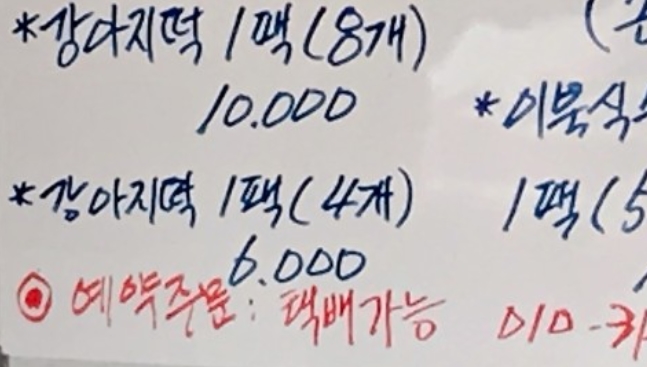 *강아지떡 1팩(8개)
10.000
*강아지떡 1팩(4개)
6.000
◉ 예약주문: 택배가능 010-
*이북식
1팩(5